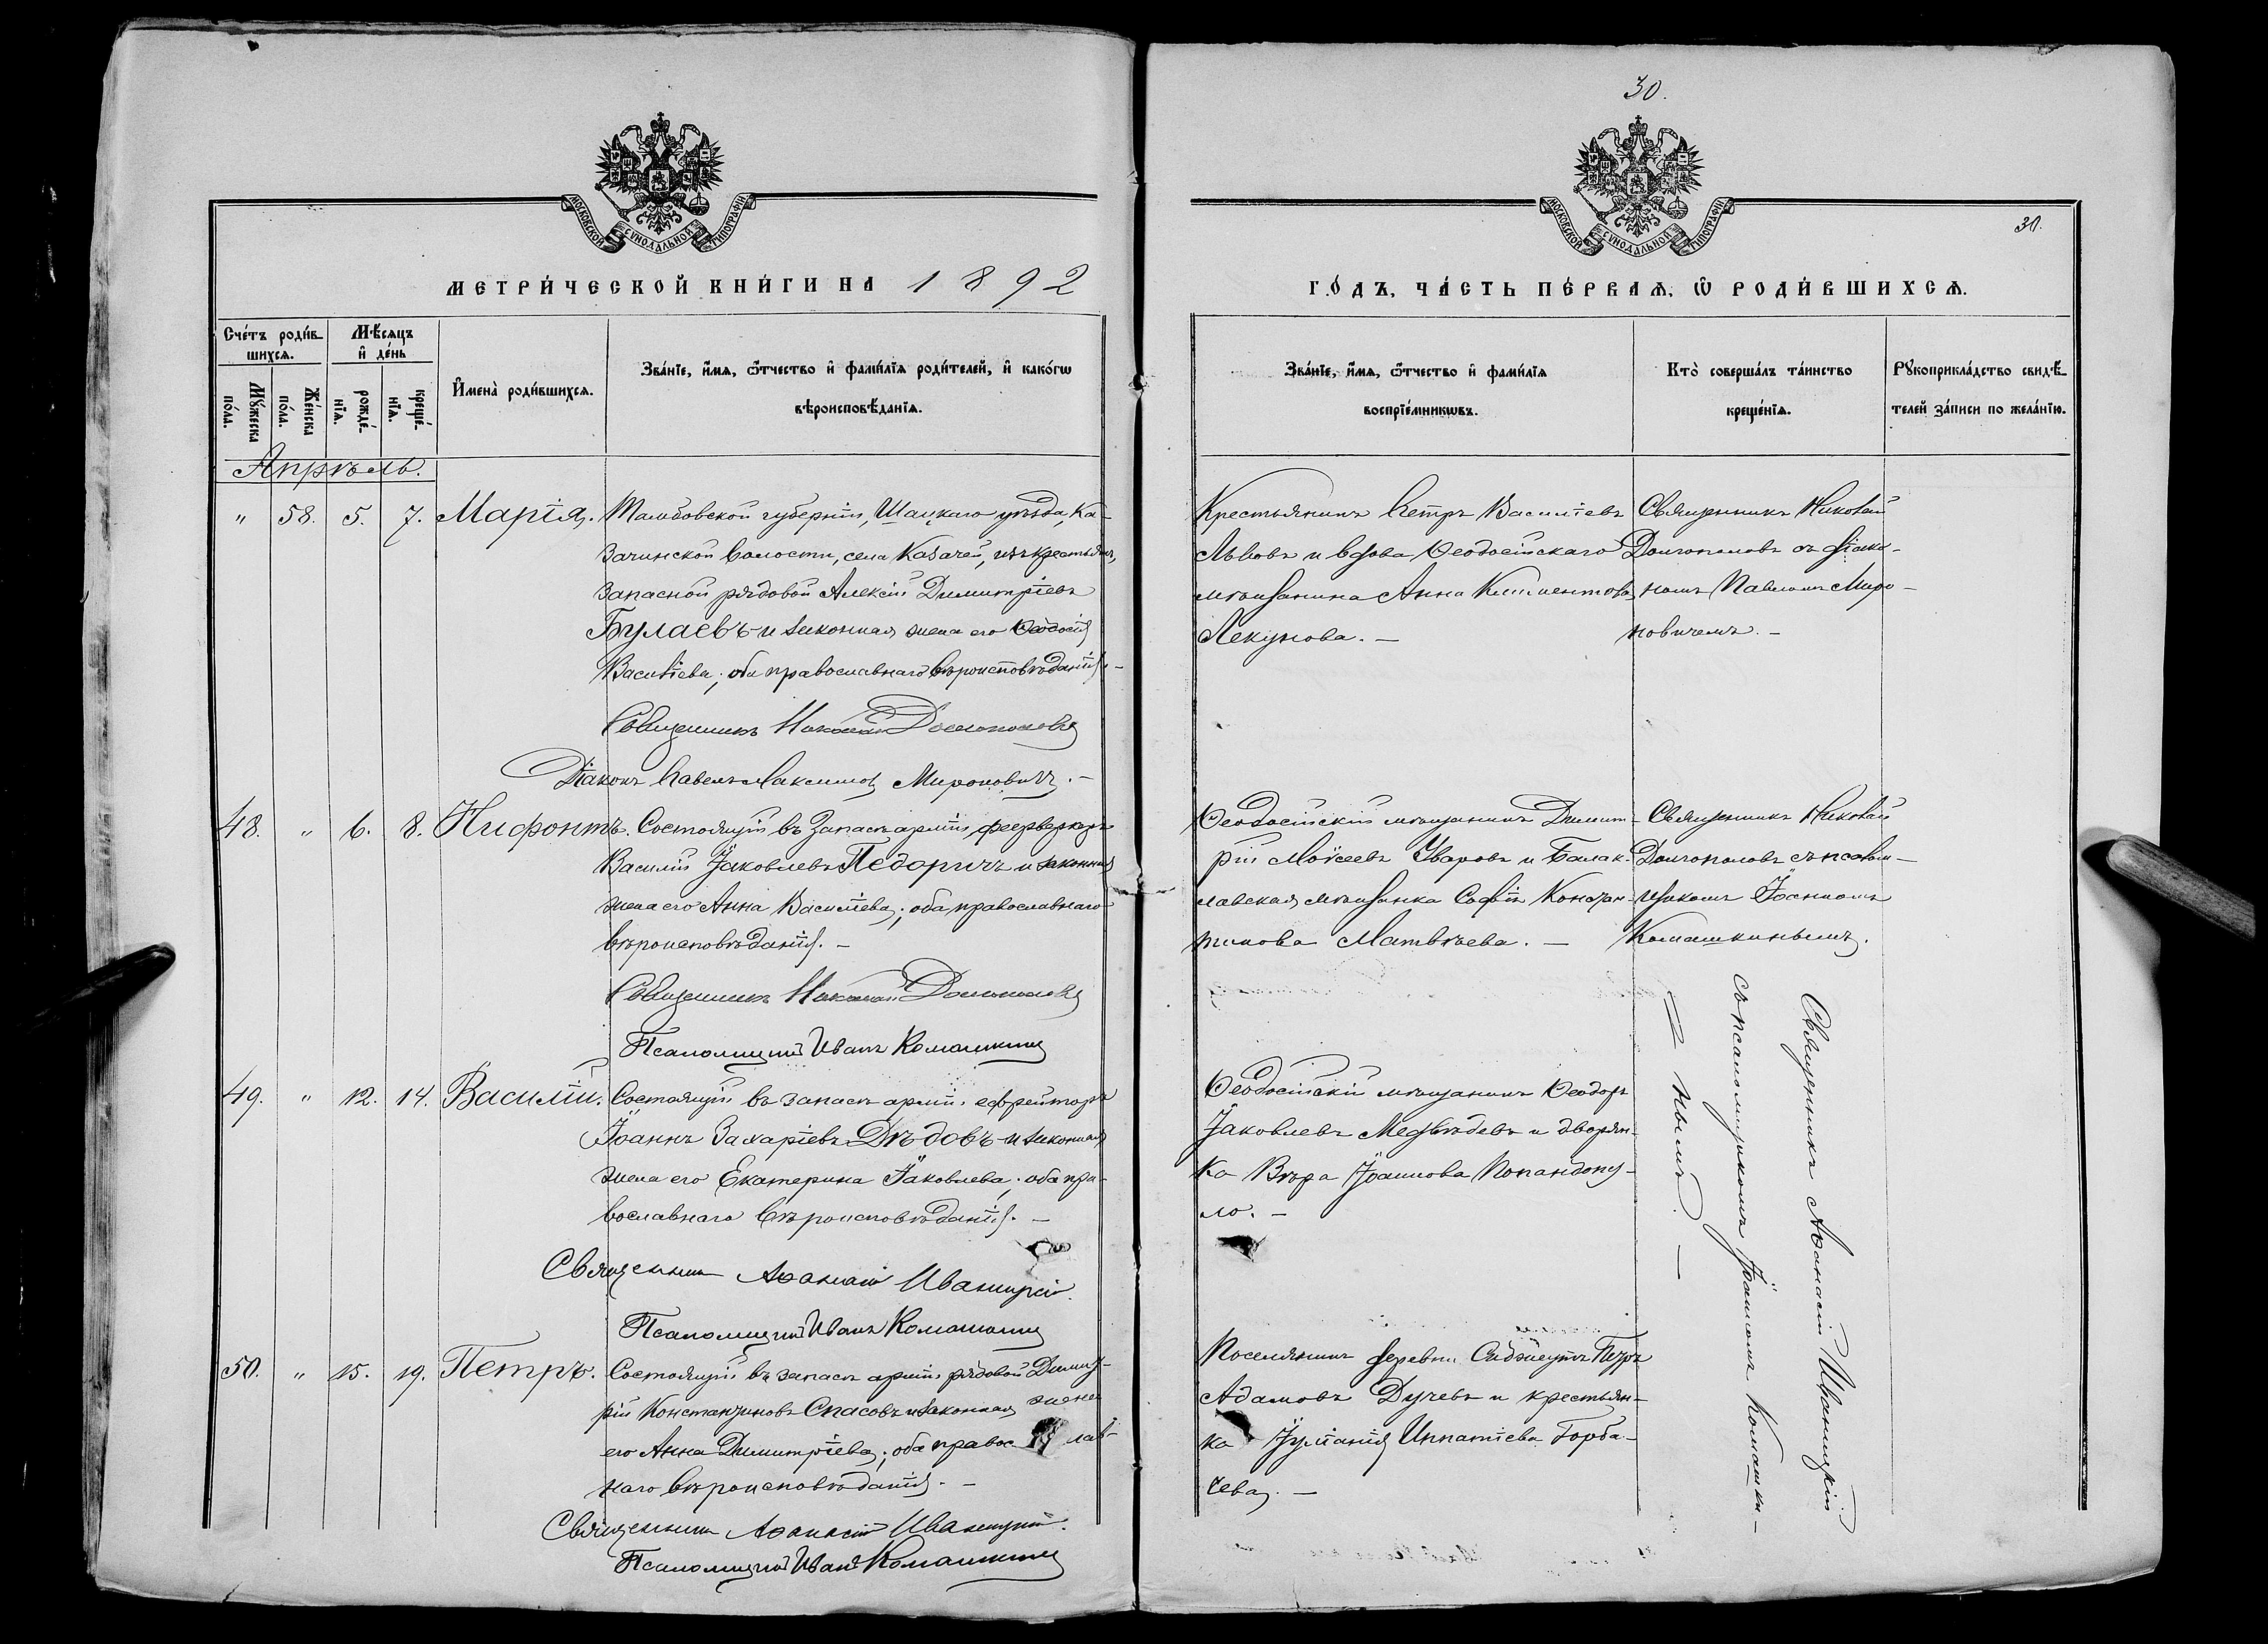 30.
МОСКОВСКОЙ СѴНОДАЛЬНОЙ ТИПОГРАФІИ
МОСКОВСКОЙ СѴНОДАЛЬНОЙ ТИПОГРАФІИ
30.
МЕТРИ́ЧЕСКОЙ КНИ́ГИ НА 1892
ГО́ДЪ, ЧА́СТЬ ПЕ́РВАѦ, Ѡ҆ РОДИ́ВШИХСѦ.
Сче́тъ роди́в-
шихсѧ.
Мꙋ́жеска по́ла.
Же́нска по́ла.
Мѣ́сѧцъ
и҆ де́нь
рожде́-
нїѧ.
креще́-
нїѧ.
И҆мена̀ роди́вшихсѧ.
Зва́нїе, и҆́мѧ, ѻ҆́тчество и҆ фами́лїѧ роди́телей, и҆ како́гѡ
вѣроисповѣ́данїѧ.
Зва́нїе, и҆́мѧ, ѻ҆́тчество и҆ фами́лїѧ
воспрїе́мникѡвъ.
Кто̀ соверша́лъ та́инство
креще́нїѧ.
Рꙋкоприкла́дство свидѣ́-
телей за́писи по жела́нїю.
Апрѣль.
" 58. 5. 7. Марія.
Тамбовской губерніи, Шацкаго уѣзда, Ка-
зачинской волости, села Казачей, изъ крестьянъ,
запасной рядовой Алексій Димитріевъ
Булаевъ и законная жена его Ѳеодосія
Васильева; оба православнаго вѣроисповѣданія. –
Священникъ Николай Долгополовъ
Діаконъ Павелъ Максимовъ Мироновичъ. –
Крестьянинъ Петръ Василіевъ
Львовъ и вдова Ѳеодосійскаго
мѣщанина Анна Климентова
Лекунова. –
Священникъ Николай
Долгополовъ съ діако-
номъ Павломъ Миро-
новичемъ. –
48. " 6. 8. Нифонтъ.
Состоящій въ запасѣ арміи феерверкеръ
Василій Іаковлевъ Педоричъ и законная
жена его Анна Василіева; оба православнаго
вѣроисповѣданія. –
Священникъ Николай Долгополовъ
Псаломщикъ Иванъ Комашкинъ
Ѳеодосійскій мѣщанинъ Димит-
рій Моѵсеевъ Уваровъ и Балак-
лавская мѣщанка Софія Констан-
тинова Матвѣева. –
Священникъ Николай
Долгополовъ съ псалом-
щикомъ Іоанномъ
Комашкинымъ.
49. " 12. 14. Василій.
Состоящій въ запасѣ арміи ефрейторъ
Іоаннъ Захаріевъ Дѣдовъ и законная
жена его Екатерина Іаковлева; оба пра-
вославнаго вѣроисповѣданія. –
Священникъ Аѳанасій Иваницкій.
Псаломщикъ Иванъ Комашкинъ
Ѳеодосійскій мѣщанинъ Ѳеодоръ
Іаковлевъ Медвѣдевъ и дворян-
ка Вѣра Іоаннова Попандопу-
ло. –
Священникъ Аѳанасій Иваницкій
съ псаломщикомъ Іоанномъ Комашки-
нымъ. –
50. " 15. 19. Петръ.
Состоящій въ запасѣ арміи рядовой Димит-
рій Константиновъ Спасовъ и законная жена
его Анна Димитріева; оба православ-
наго вѣроисповѣданія. –
Священникъ Аѳанасій Иваницкій.
Псаломщикъ Иванъ Комашкинъ
Поселянинъ деревни Петръ
Адамовъ Дучевъ и крестьян-
ка Іуліанія Ипатіева Горба-
чева. –